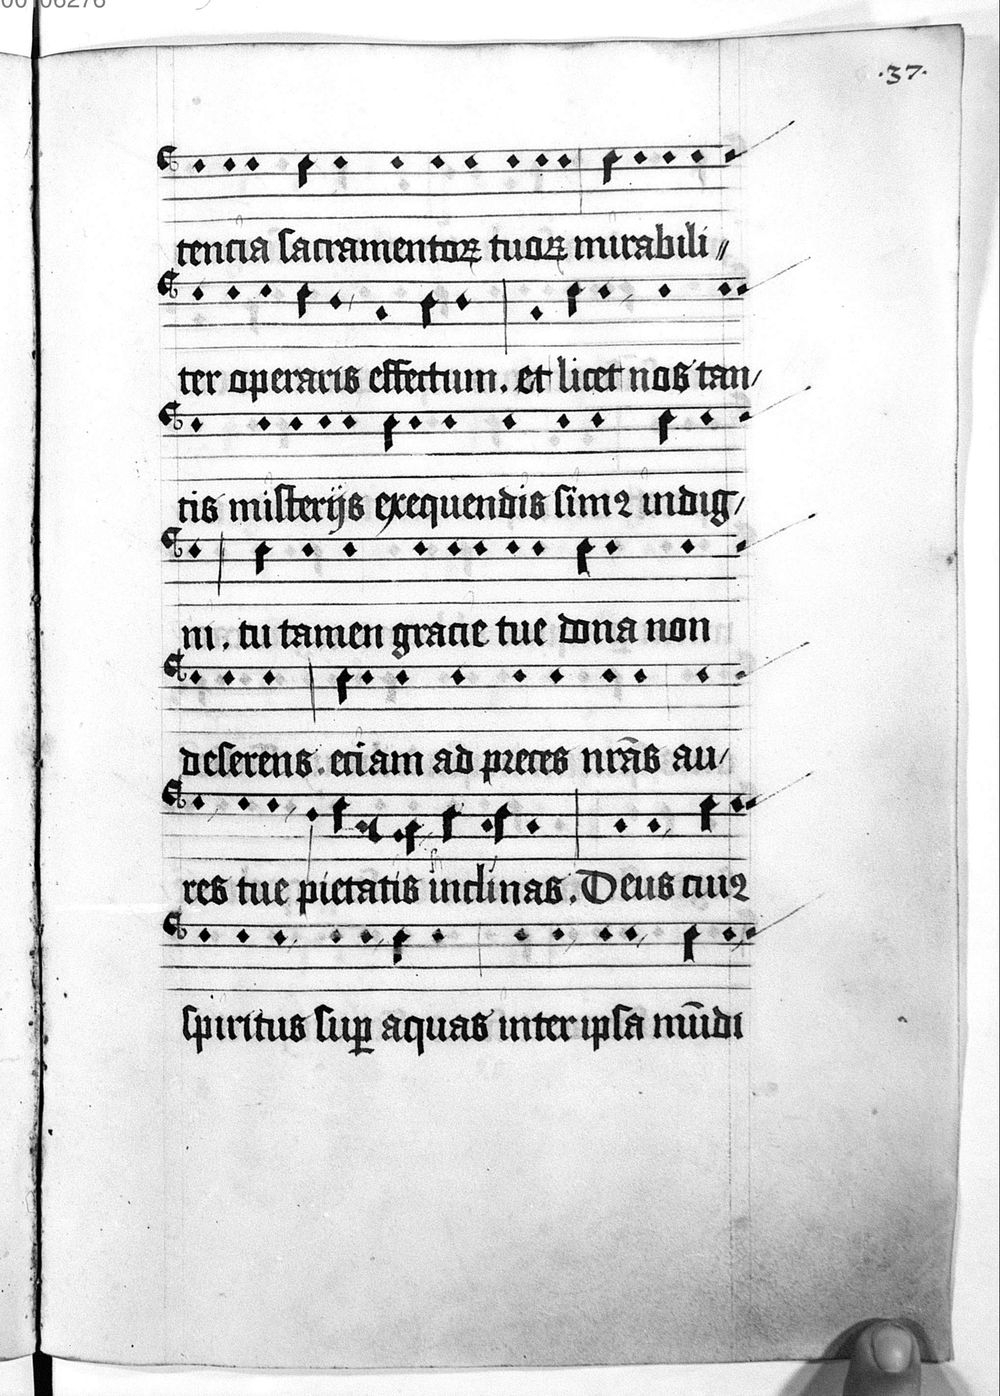 00106276
·37·
tencia sacramentoꝝ tuoꝝ mirabili〃
ter operaris effectum. et licet nos tan/
tis misterijs exequendis simꝰ indig/
ni. tu tamen gracie tue dona non
deserens. eciam ad preces nr̄as au/
res tue pietatis inclinas. Deus cuiꝰ
spiritus suꝑ aquas inter ipsa mūdi